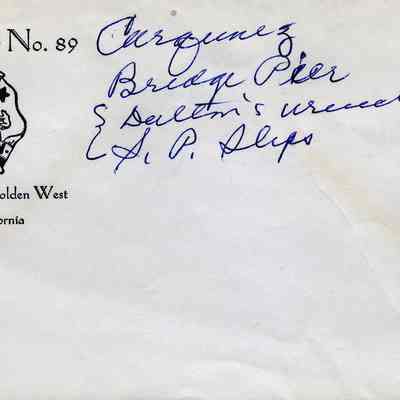 No. 89
Carquinez
Bridge Pier
& Dalton's
& S. P. Slips
olden West
ornia